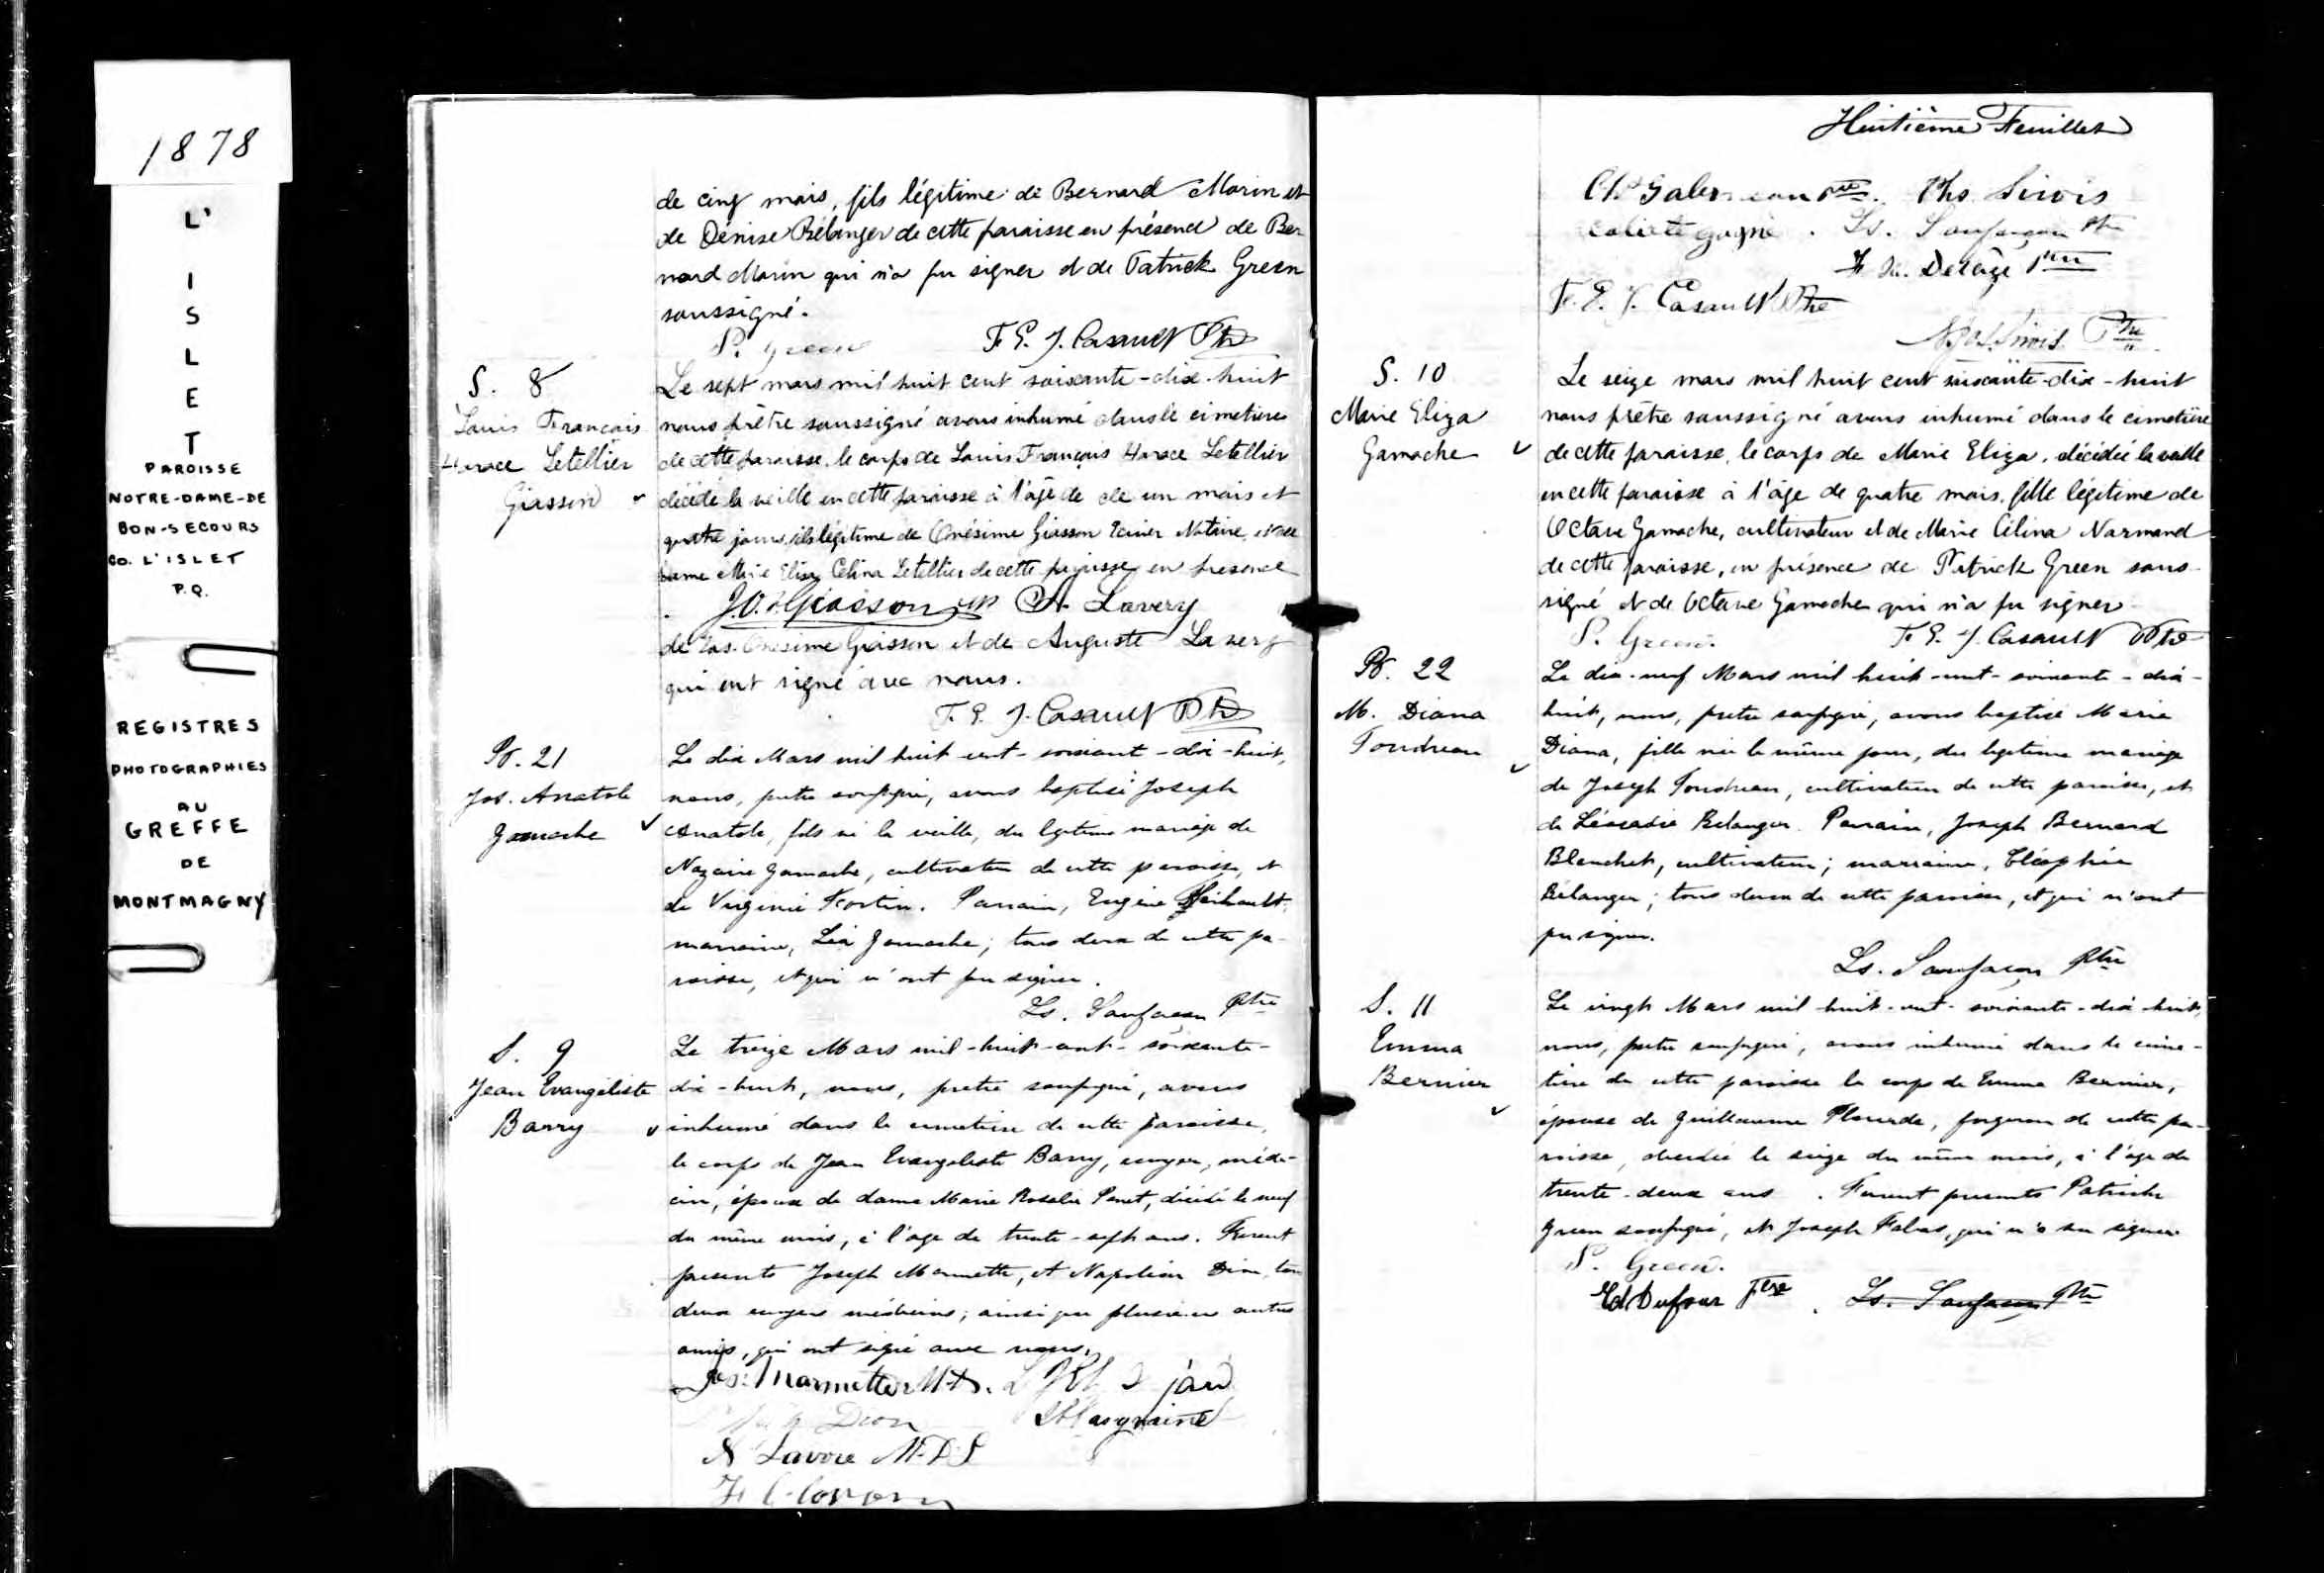 1878
L'
I
S
L
E
T
PAROISSE
NOTRE-DAME-DE
BON-SECOURS
CO. L'ISLET
P.Q.
REGISTRES
PHOTOGRAPHIES
AU
GREFFE
DE
MONTMAGNY
de cinq mois, fils légitime de Bernard Morin et
de Dénise Bélanger de cette paroisse en présence de Ber
nard Morin qui n'a pu signer et de Patrick Green
soussigné.
P. Green F. E. J. Casault Ptre
S. 8
Louis François
Horace Letellier
Giasson
Le sept mars mil huit cent soixante-dix-huit
nous prêtre soussigné avons inhumé dans le cimetière
de cette paroisse, le corps de Louis François Horace Letellier
décédé la veille en cette paroisse à l'âge de de un mois et
quatre jours, fils légitime de Onésime Giasson Ecuier Notaire, et de
Dame Marie Eliza Célina Letellier de cette paroisse en présence
J.O. Giasson A. Lavery
de Onésime Giasson et de Auguste Lavery
qui ont signé avec nous.
F. E. J. Casault Ptre
B. 21
Jos. Anatole
Gamache
Le dix Mars mil huit-cent-soixante-dix-huit,
nous, prêtre soussigné, avons baptisé Joseph
Anatole, fils né la veille, du légitime mariage de
Nazaire Gamache, cultivateur de cette paroisse, et
de Virginie Fortin. Parrain, Eugène
marraine, Léa Gamache; tous deux de cette pa-
roisse, et qui n'ont pu signer.
Ls. Sanfaçon Ptre
S. 9
Jean Evangéliste
Barry
Le treize Mars mil-huit-cent-soixante-
dix-huit, nous, prêtre soussigné, avons
inhumé dans le cimetière de cette paroisse,
le corps de Jean Evangéliste Barry, écuyer, méde-
cin, époux de dame Marie Rosalie Panet, décédé le neuf
du même mois, à l'âge de trente-sept ans. Furent
présents Joseph Marmette, et Napoléon Dion, tous
deux écuyers médecins; ainsi que plusieurs autres
amis, qui ont signé avec nous.
Jos. Marmette M.D.
Dion Casgrain
N Lavoie M.D.
Huitième Feuillet
Ptre. Ths. Sirois
Calixte Gagné. Ls. Sanfaçon Ptre
Delâge Ptre
F. E. J. Casault Ptre
Sirois Ptre
S. 10
Marie Eliza
Gamache
Le seize mars mil huit cent soixante-dix-huit
nous prêtre soussigné avons inhumé dans le cimetière
de cette paroisse, le corps de Marie Eliza, décédée la veille
en cette paroisse à l'âge de quatre mois, fille légitime de
Octave Gamache, cultivateur et de Marie Célina Normand
de cette paroisse, en présence de Patrick Green sous-
signé et de Octave Gamache qui n'a pu signer
P. Green. F. E. J. Casault Ptre
B. 22
M. Diana
Tondreau
Le dix-neuf Mars mil huit-cent-soixante-dix-
huit, nous, prêtre soussigné, avons baptisé Marie
Diana, fille née le même jour, du légitime mariage
de Joseph Tondreau, cultivateur de cette paroisse, et
de Léocadie Bélanger. Parrain, Joseph Bernard
Blanchet, cultivateur; marraine, Cléophie
Bélanger; tous deux de cette paroisse, et qui n'ont
pu signer.
Ls. Sanfaçon Ptre
S. 11
Emma
Bernier
Le vingt Mars mil-huit-cent-soixante-dix-huit,
nous, prêtre soussigné, avons inhumé dans le cime-
tière de cette paroisse le corps de Emma Bernier,
épouse de Guillaume Plourde, forgeron de cette pa-
roisse, décédée le seize du même mois, à l'âge de
trente-deux ans. Furent présents Patrick
Green soussigné, et Joseph qui n'a su signer
P. Green.
Ed Dufour Ls. Sanfaçon Ptre